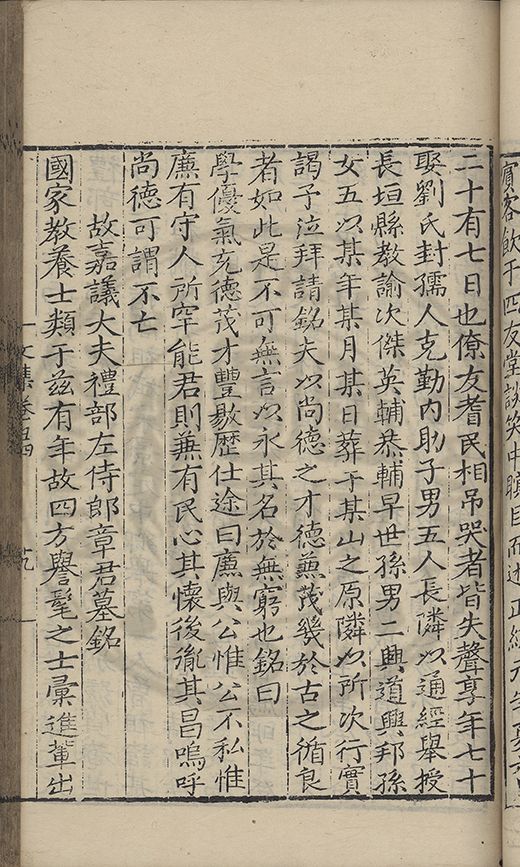 賓客飲于四友堂談笑中瞑目而逝正統元年夏六月
二十有七日也僚友耆民相吊哭者皆失聲享年七十
娶劉氏封孺人克勤內助子男五人長隣以通經舉授
長垣縣教諭次傑英輔恭輔早世孫男二興道興邦孫
女五以某年某月某日葬于某山之原隣以所次行實
謁予泣拜請銘夫以尚德之才德薦茂幾於古之循良
者如此是不可無言以永其名於無窮也銘曰
學優氣充德茂才豐敭歷仕途曰廉與公惟公不私惟
廉有守人所罕能君則兼有民心其懷後胤其昌嗚呼
尚德可謂不亡
故嘉議大夫禮部左侍郎章君墓銘
國家教養士類于兹有年故四方譽髦之士彙進輩出
文集卷
十九